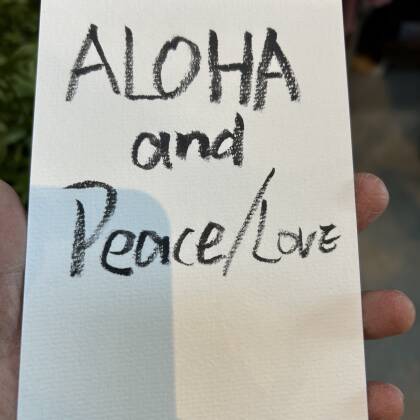 ALOHA
and
Peace/LOVE